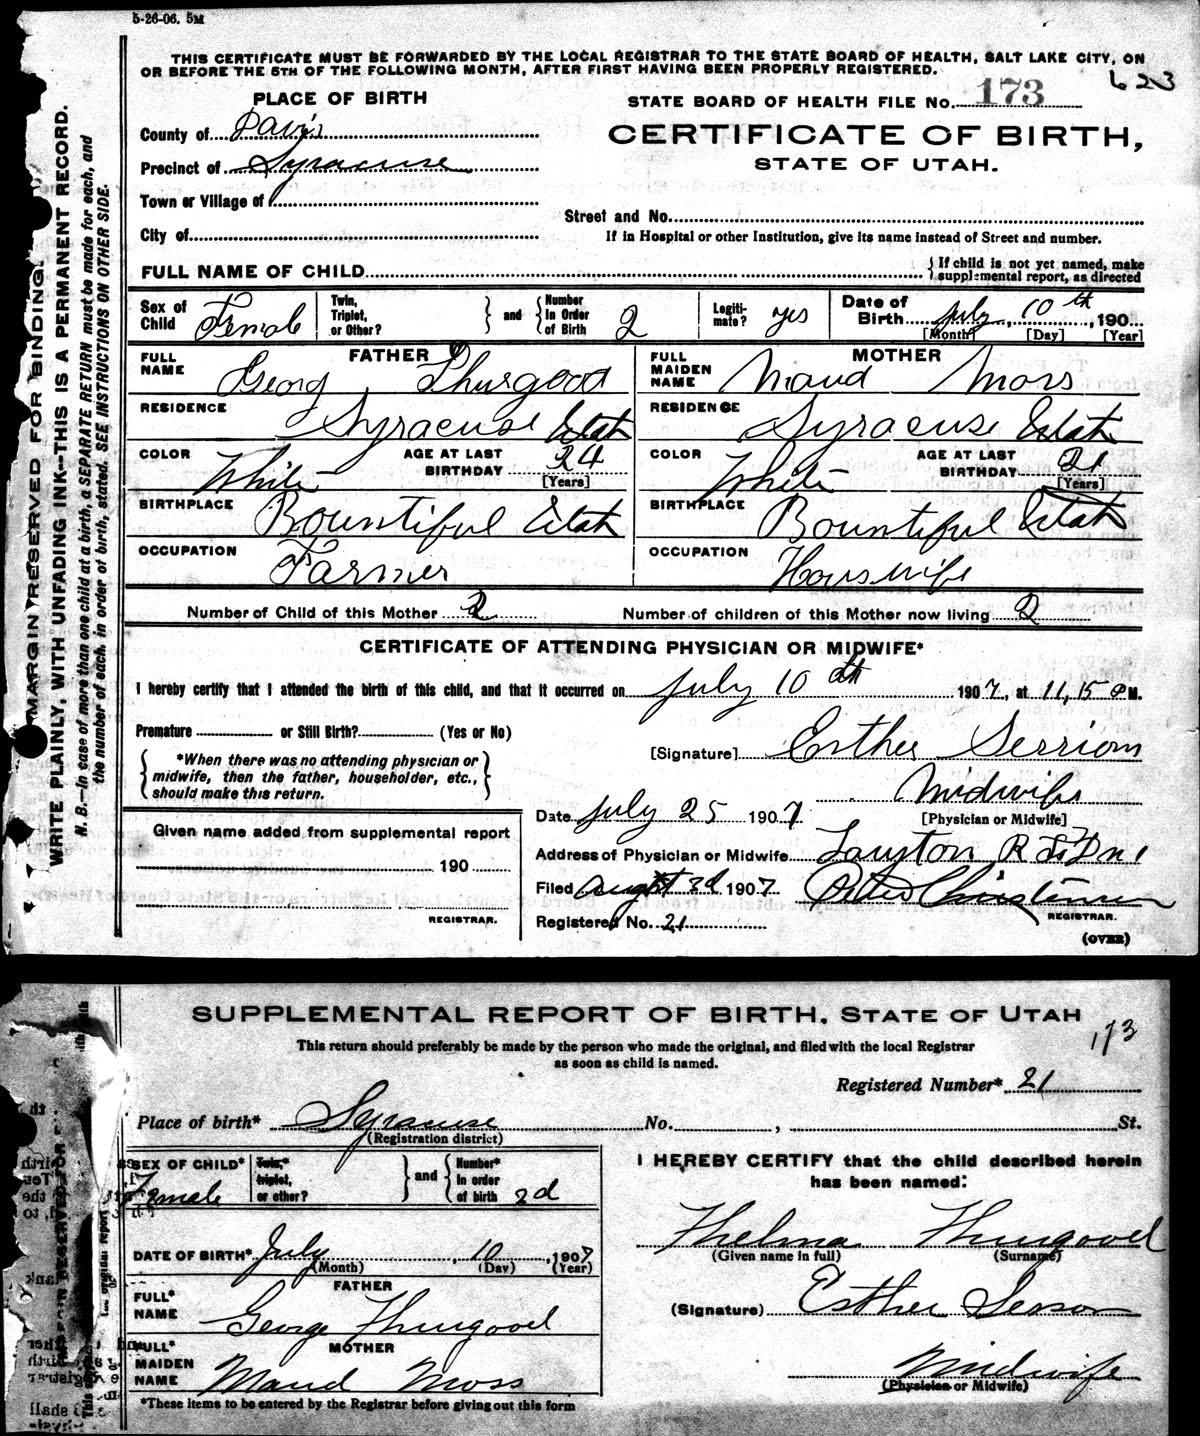 5-26-06. 5M
THIS CERTIFICATE MUST BE FORWARDED BY THE LOCAL REGISTRAR TO THE STATE BOARD OF HEALTH, SALT LAKE CITY, ON
OR BEFORE THE 5TH OF THE FOLLOWING MONTH, AFTER FIRST HAVING BEEN PROPERLY REGISTERED.
623
PLACE OF BIRTH
STATE BOARD OF HEALTH FILE No. 173
County of Davis
CERTIFICATE OF BIRTH,
Precinct of Syracuse
STATE OF UTAH.
Town or Village of
Street and No.
City of
If in Hospital or other Institution, give its name instead of Street and number.
FULL NAME OF CHILD
{ If child is not yet named, make
supplemental report, as directed
Sex of Child Female
Twin, Triplet, or Other?
and
Number In Order of Birth 2
Legiti-mate? yes
Date of Birth July, 10th, 190
[Month] [Day] [Year]
FATHER
FULL NAME Georg Thurgood
MOTHER
FULL MAIDEN NAME Maud Moss
RESIDENCE Syracuse Utah
RESIDENCE Syracuse Utah
COLOR White
AGE AT LAST BIRTHDAY 24 [Years]
COLOR White
AGE AT LAST BIRTHDAY 21 [Years]
BIRTHPLACE Bountiful Utah
BIRTHPLACE Bountiful Utah
OCCUPATION Farmer
OCCUPATION Houswife
Number of Child of this Mother 2
Number of children of this Mother now living 2
CERTIFICATE OF ATTENDING PHYSICIAN OR MIDWIFE*
I hereby certify that I attended the birth of this child, and that it occurred on July 10th 1907, at 11,15 P M.
Premature or Still Birth? (Yes or No)
[Signature] Esther
*When there was no attending physician or
midwife, then the father, householder, etc.,
should make this return.
Midwife
[Physician or Midwife]
Date July 25 1907
Given name added from supplemental report
Address of Physician or Midwife Layton R
190
Filed August 3d 1907
REGISTRAR.
REGISTRAR.
Registered No. 21
(OVER)
MARGIN RESERVED FOR BINDING.
WRITE PLAINLY, WITH UNFADING INK--THIS IS A PERMANENT RECORD.
N. B.--In case of more than one child at a birth, a SEPARATE RETURN must be made for each, and
the number of each, in order of birth, stated. SEE INSTRUCTIONS ON OTHER SIDE.
SUPPLEMENTAL REPORT OF BIRTH, STATE OF UTAH
173
This return should preferably be made by the person who made the original, and filed with the local Registrar
as soon as child is named.
Registered Number* 21
Place of birth* Syracuse No. , St.
(Registration district)
SEX OF CHILD* Female
Twin,* triplet, or other?
and
Number* In order of birth 2d
I HEREBY CERTIFY that the child described herein
has been named:
Thelma Thurgood
(Given name in full) (Surname)
DATE OF BIRTH* July 10, 1907
(Month) (Day) (Year)
FATHER
FULL* NAME George Thurgood
(Signature) Esther
MOTHER
FULL* MAIDEN NAME Maud Moss
Midwife
(Physician or Midwife)
*These items to be entered by the Registrar before giving out this form